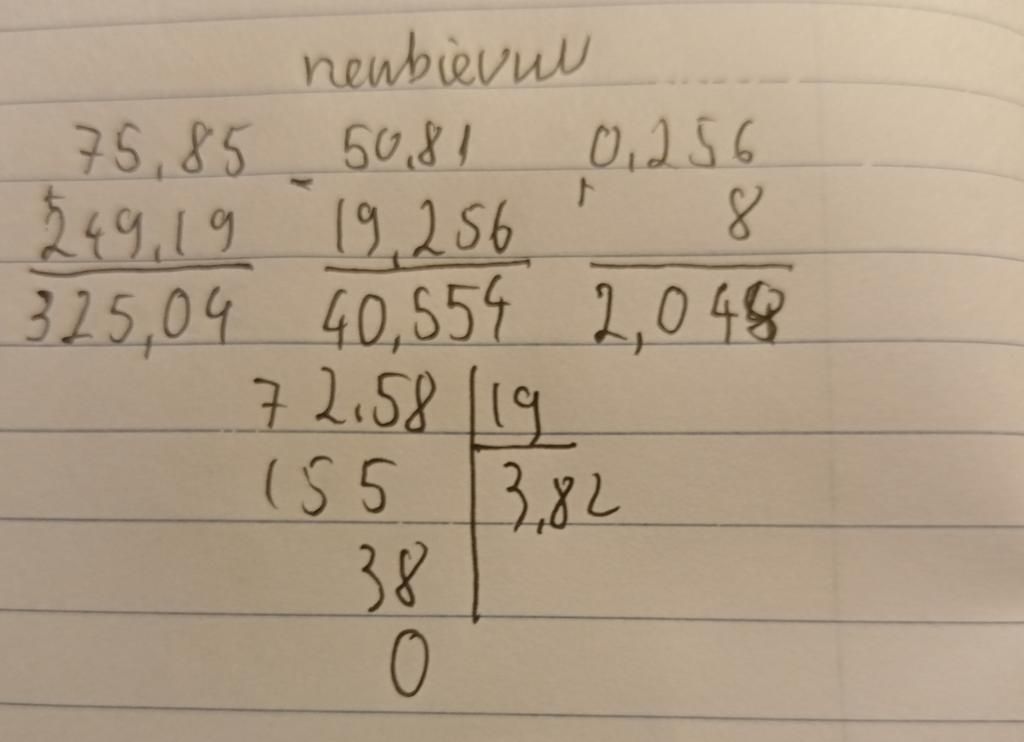 75,85 - 50,81 0,256
+ 249,19 19,256 8
325,04 40,554 2,048
72.58 | 19
155 3,82
38
0